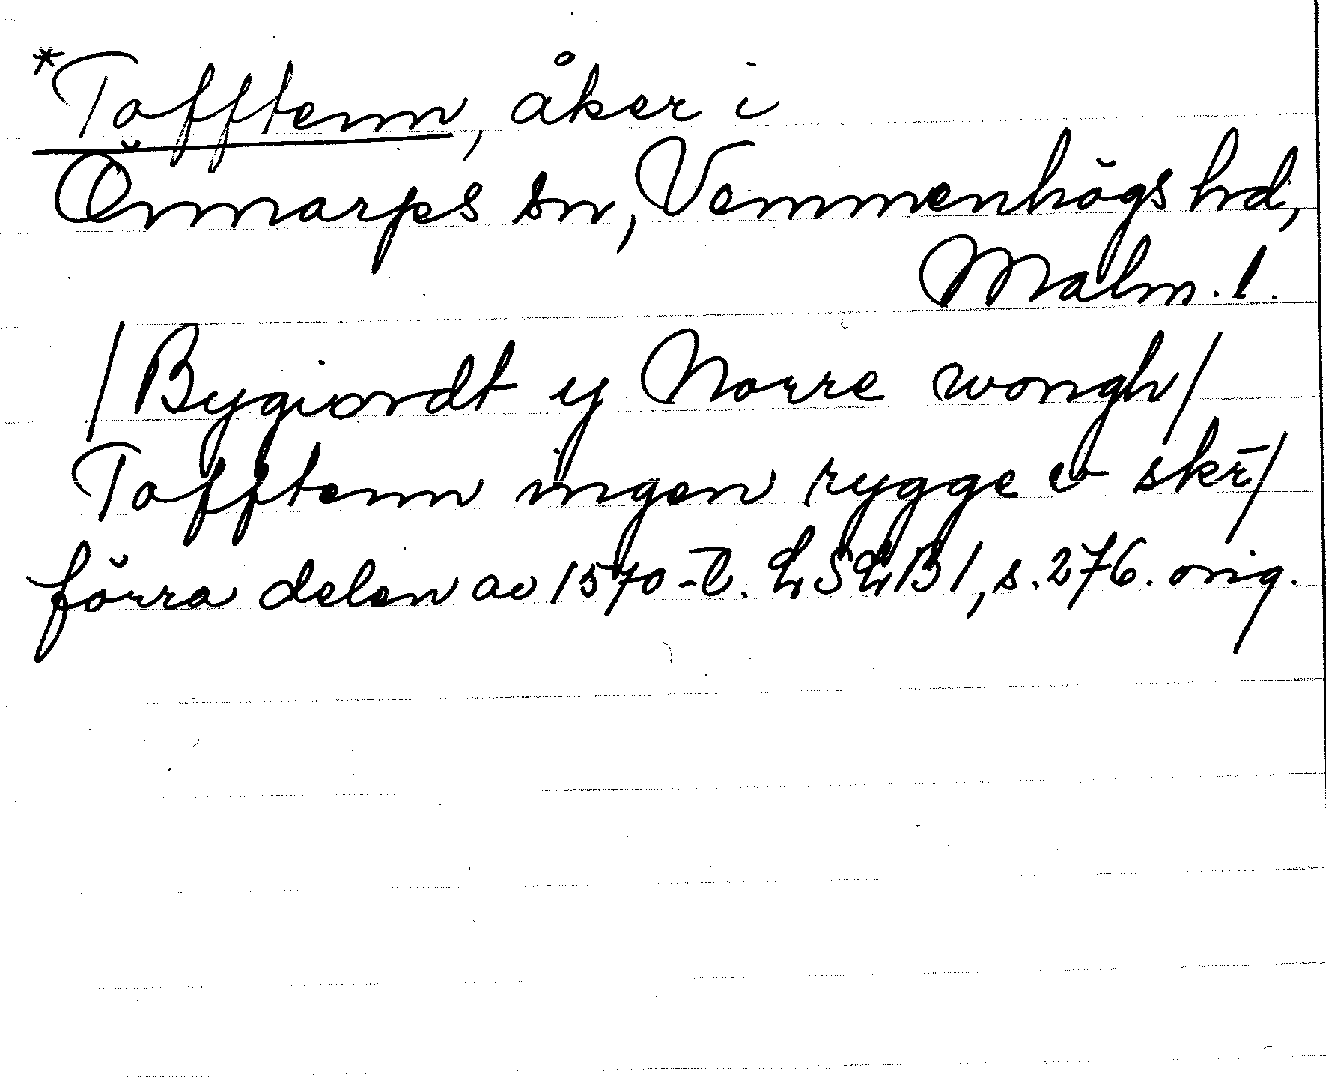 *Tofftenn, åker i
Önnarps sn, Vemmenhögs hd,
Malm. l.
/Bygiordt y Norre wongh/
Tofftenn ingen rygge v skr̄/
förra delen av 1570-t. LSLB 1, s. 276. orig.